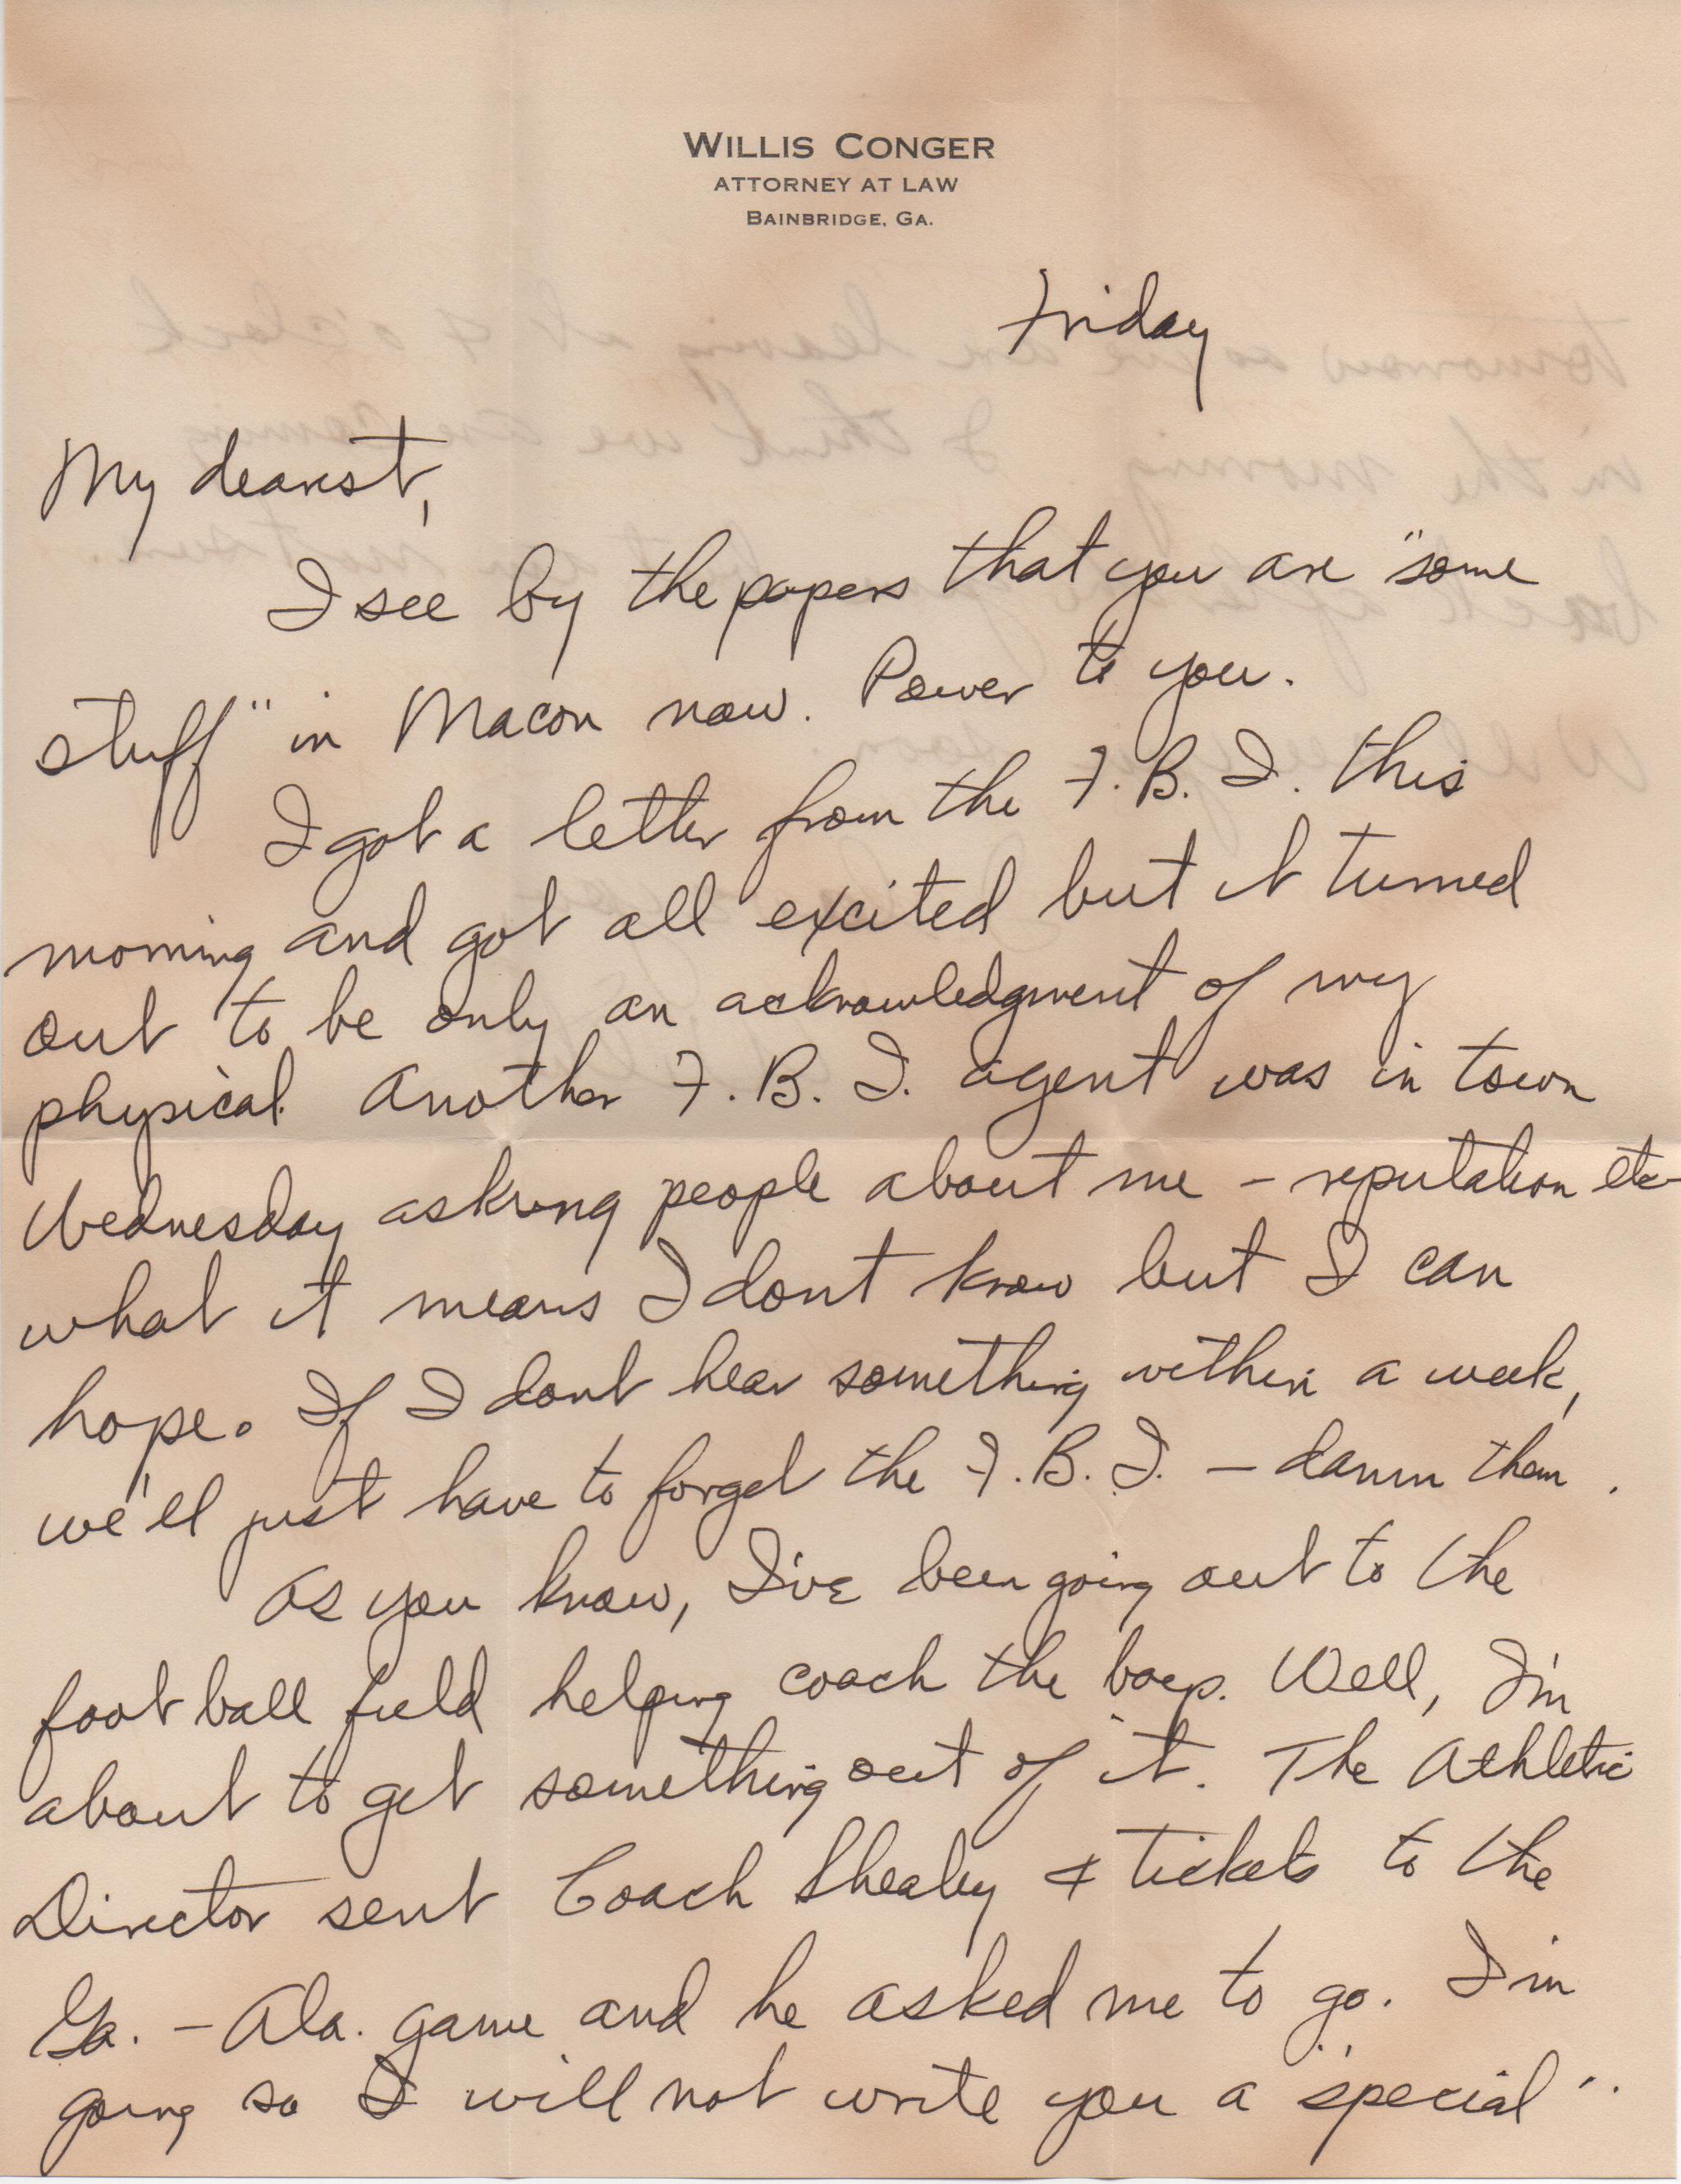 WILLIS CONGER
ATTORNEY AT LAW
BAINBRIDGE, GA.
Friday
My dearest,
I see by the papers that you are "some
stuff" in Macon now. Power to you.
I got a letter from the F. B. I. this
morning and got all excited but it turned
out to be only an acknowledgment of my
physical. Another F. B. I. agent was in town
Wednesday asking people about me - reputation etc
what it means I dont know but I can
hope. If I dont hear something within a week,
we'll just have to forget the F. B. I. - damn them.
As you know, I've been going out to the
foot ball field helping coach the boys. Well, I'm
about to get something out of it. The Athletic
Director sent Coach Shealey 4 tickets to the
Ga. - Ala. game and he asked me to go. I'm
going so I will not write you a "special".